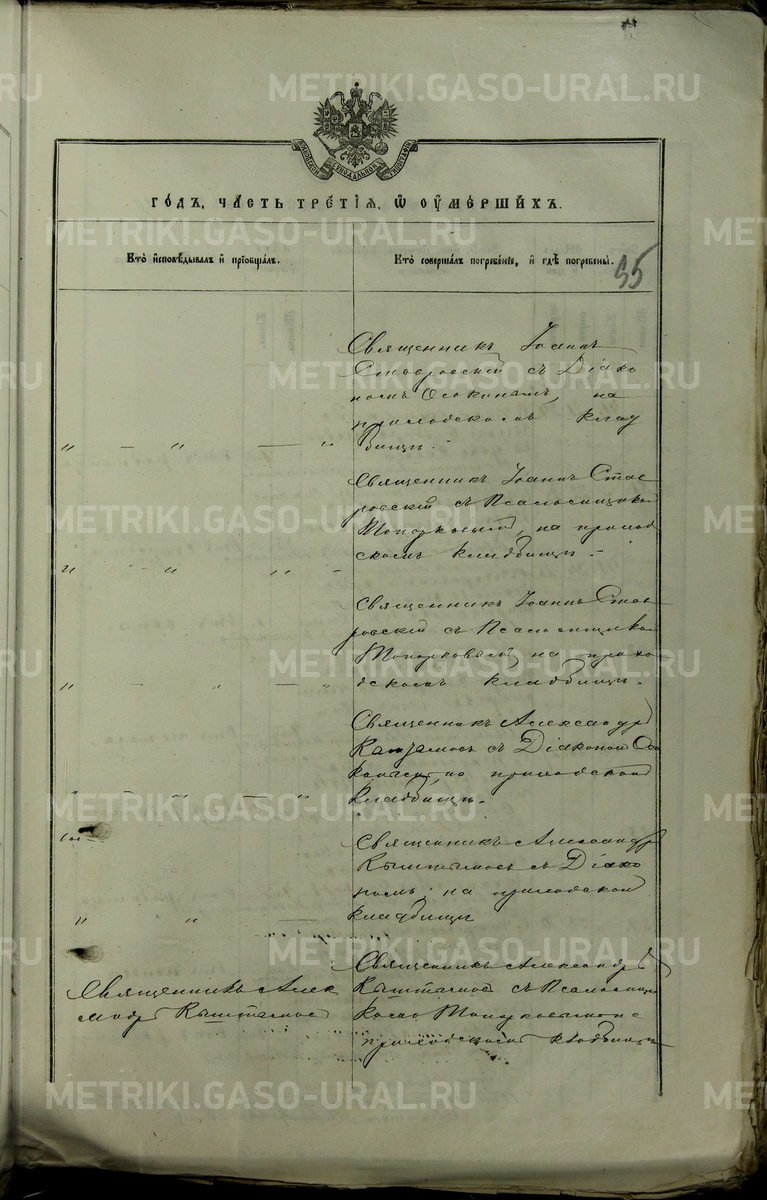 МОСКОВСКОЙ СИНОДАЛЬНОЙ ТИПОГРАФІИ
ГОДЪ, ЧАСТЬ ТРЕТІЯ, Ѡ ОУМЕРШИХЪ.
Кто исповѣдывалъ и пріобщалъ.
Кто совершалъ погребеніе, и гдѣ погребены.
35
Священникъ Іоаннъ
Ставровскій съ Діако
номъ Осокинымъ, на
приходскомъ клад
бищѣ.
Священникъ Іоаннъ Став
ровскій съ Псаломщикомъ
Топорковымъ, на приход
скомъ кладбищѣ.
Священникъ Іоаннъ Став
ровскій съ Псаломщикомъ
Топорковымъ, на прихо
дскомъ кладбищѣ.
Священникъ Александръ
съ Діакономъ Осо
кинымъ, на приходскомъ
кладбищѣ.
Священникъ Александръ
Кыштымовъ съ Діако
номъ, на приходском
кладбищѣ
Священникъ Алек
Кыштымовъ
Священникъ Александръ
Кыштымовъ съ Псаломщи
комъ Топорковымъ
приходскомъ кладбищѣ
METRIKI.GASO-URAL.RU